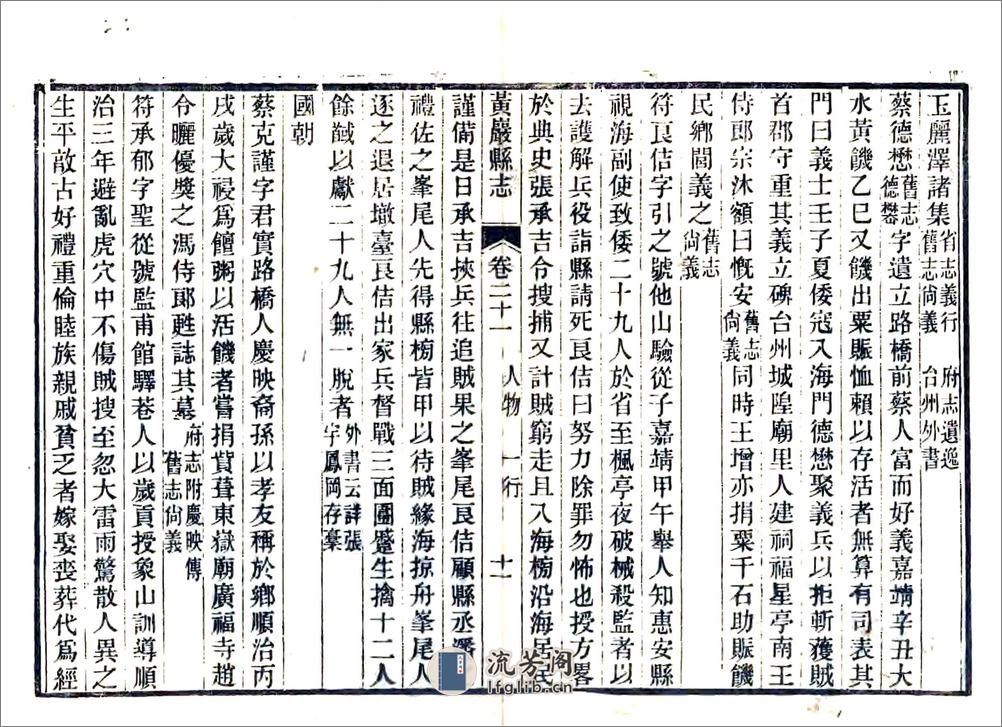 玉麗澤諸集省志義行　府志遺逸舊志尚義　台州外書
蔡德懋舊志德懋字遺立路橋前蔡人富而好義嘉靖辛丑大
水黃饑乙巳又饑出粟賑恤賴以存活者無算有司表其
門曰義士壬子夏倭寇入海門德懋聚義兵以拒斬獲賊
首郡守重其義立碑台州城隍廟里人建祠福星亭南王
侍郎宗沐額曰慨安舊志尚義同時王增亦捐粟千石助賑饑
民鄉閭義之舊志尚義
符良佶字引之號他山驗從子嘉靖甲午舉人知惠安縣
視海副使致倭二十九人於省至楓亭夜破械殺監者以
去護解兵役詣縣請死良佶曰努力除罪勿怖也授方畧
於典史張承吉令搜捕又計賊窮走且入海榜沿海居民
黃巖縣志　卷二十一　人物　一行　十一
謹備是日承吉挾兵往追賊果之峯尾良佶顧縣丞潘
禮佐之峯尾人先得縣榜皆甲以待賊緣海掠舟峯尾人
逐之退居墩臺良佶出家兵督戰三面圍蹙生擒十二人
餘馘以獻二十九人無一脫者外書云詳張宇鳳岡存稾
國朝
蔡克謹字君實路橋人慶映裔孫以孝友稱於鄉順治丙
戌歲大祲爲饘粥以活饑者嘗捐貲葺東嶽廟廣福寺趙
令曬優奬之馮侍郎甦誌其墓府志附慶映傳舊志尚義
符承郁字聖從號監甫館驛巷人以歲貢授象山訓導順
治三年避亂虎穴中不傷賊搜至忽大雷雨驚散人異之
生平敵古好禮重倫睦族親戚貧乏者嫁娶喪葬代爲經
流芳閣
lfglib.cn